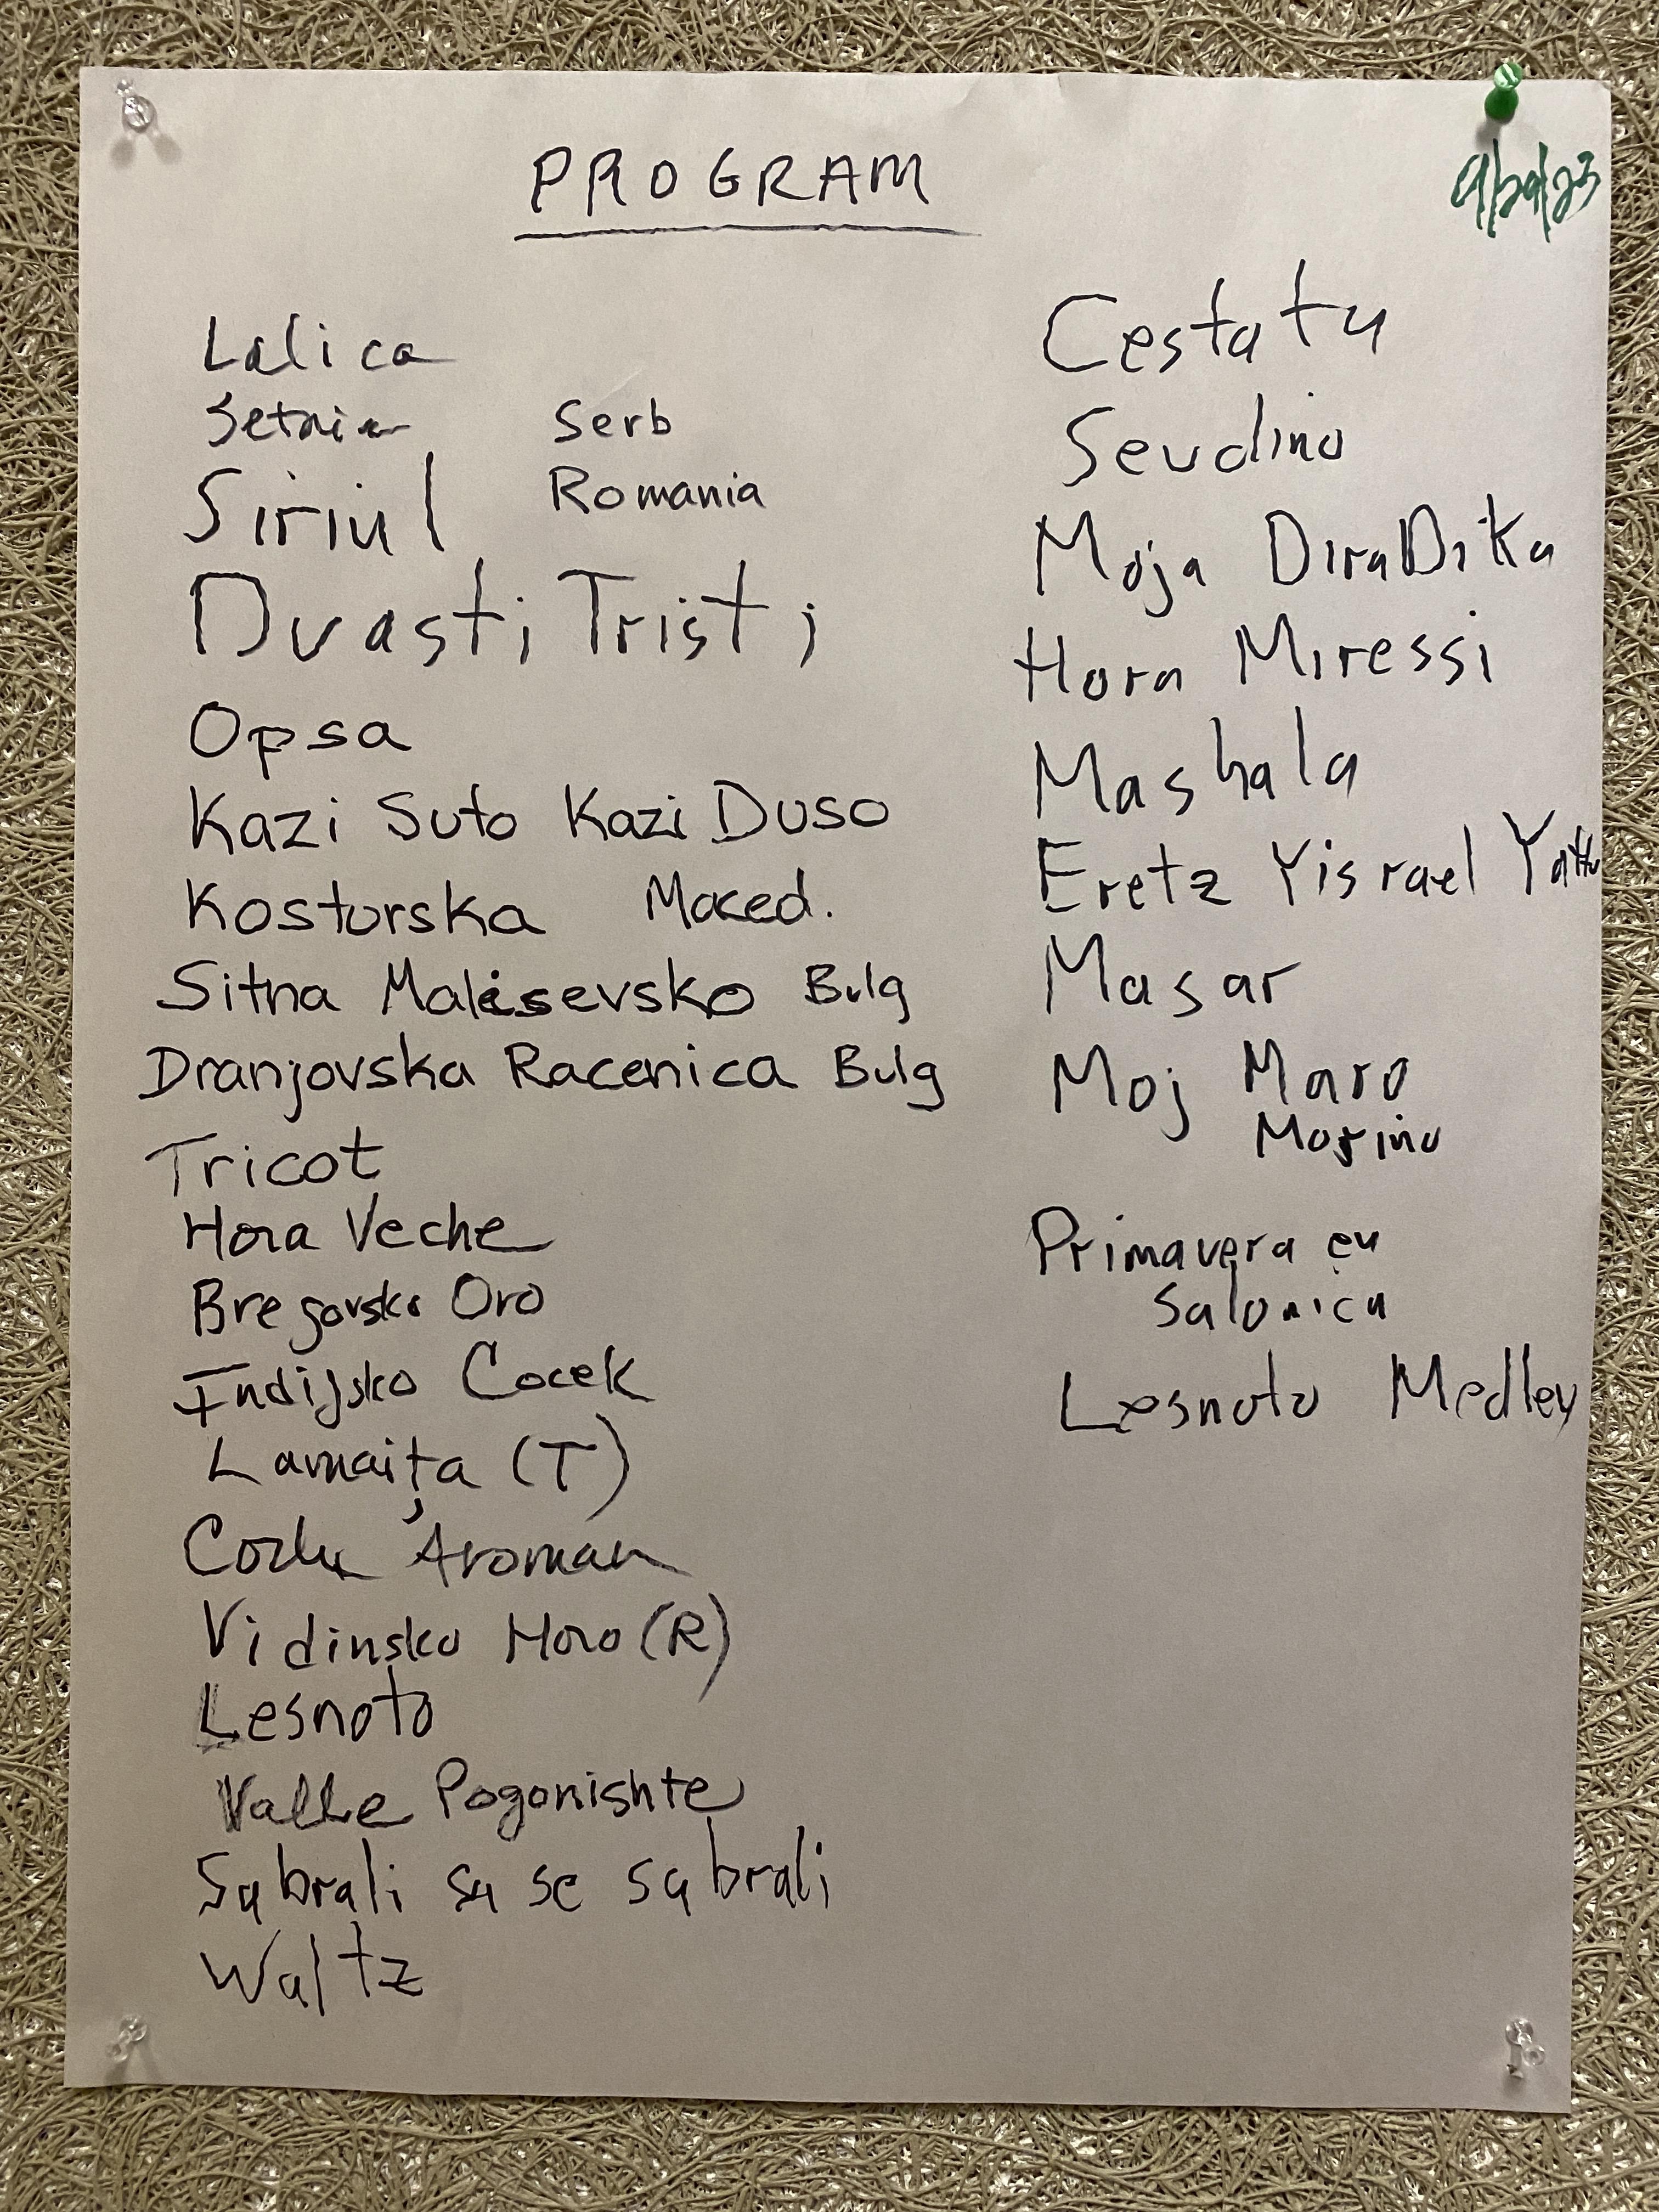 PROGRAM
9/29/23
Lalica
Setnia Serb
Siriul Romania
Dvasti Tristi
Opsa
Kazi Suto Kazi Duso
Kosturska Maced.
Sitna Malesevsko Bulg
Dranjovska Racenica Bulg
Tricot
Hora Veche
Bregovsko Oro
Indijsko Cocek
Lamaița (T)
Aroman
Vidinsko Horo (R)
Lesnoto
Valle Pogonishte
Sabrali sa se sabrali
Waltz
Cestatu
Sevdino
Moja Diridika
Hora Miressi
Mashala
Eretz Yisrael
Masar
Moj Maro
Marino
Primavera en
Salonica
Lesnoto Medley